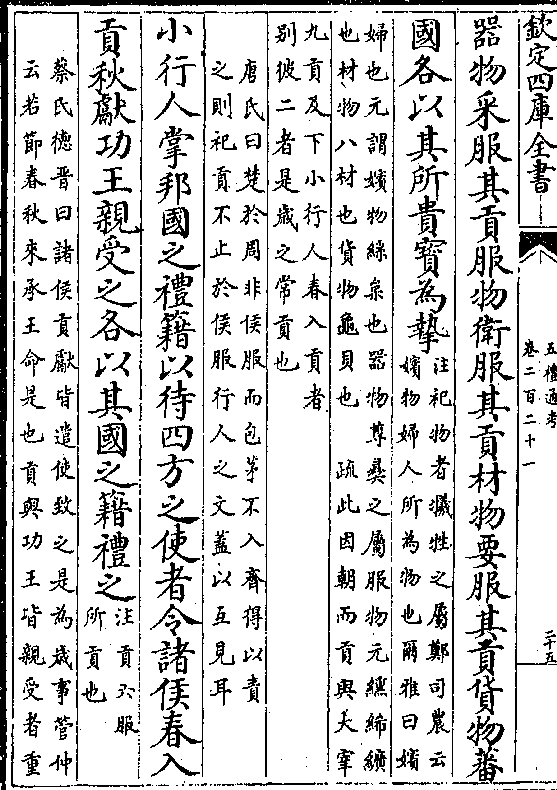 欽定四庫全書
五禮通考
卷二百二十一
二十五
器物采服其貢服物衛服其貢材物要服其貢貨物蕃
國各以其所貴寳為摯
注祀物者犧牲之屬鄭司農云
嬪物婦人所為物也爾雅曰嬪
婦也元謂嬪物絲枲也器物尊彝之屬服物元纁絺纊
也材物八材也貨物龜貝也 疏此因朝而貢與大宰
九貢及下小行人春入貢者
別彼二者是歲之常貢也
唐氏曰楚於周非侯服而包茅不入齊得以責
之則祀貢不止於侯服行人之文蓋以互見耳
小行人掌邦國之禮籍以待四方之使者令諸侯春入
貢秋獻功王親受之各以其國之籍禮之
注貢六服
所貢也
蔡氏德晉曰諸侯貢獻皆遣使致之是為歲事管仲
云若節春秋來承王命是也貢與功王皆親受者重